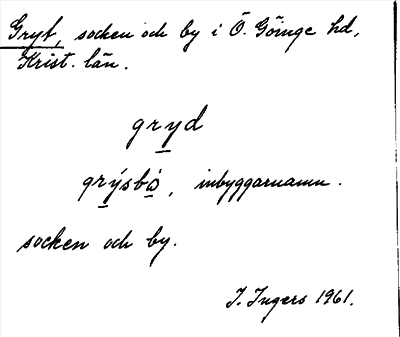 Gryt, socken och by i Ö. Göinge hd,
Krist. län.
gryd
grýsbò, inbyggarnamn.
socken och by.
I. Ingers 1961.